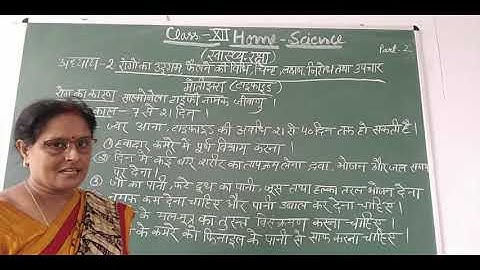 Class-XII Home-Science
(स्वास्थ्य रक्षा)
Part. 2
अध्याय-2 रोगों का उद्गम फैलने की विधि, चिन्ह, लक्षण, निरोध तथा उपचार
मोतीझरा (टाइफाइड)
रोग का कारण साल्मोनेला टाइफी नामक जीवाणु।
काल - 7 से 21 दिन।
ज्वर आना, टाइफाइड की अवधि 21 से 40 दिन तक हो सकती है।
① हवादार कमरे में पूर्ण विश्राम करना।
② दिन में कई बार शरीर का तापक्रम लेना दवा, भोजन और जल समय पर देना।
③ जौ का पानी, फटे दूध का पानी, जूस तथा हल्का तरल भोजन देना
नमक कम देना चाहिए और पानी उबाल कर देना चाहिए।
के मलमूत्र का तुरन्त विसंक्रमण करना चाहिए।
के कमरे को फिनाइल के पानी से साफ करना चाहिए।